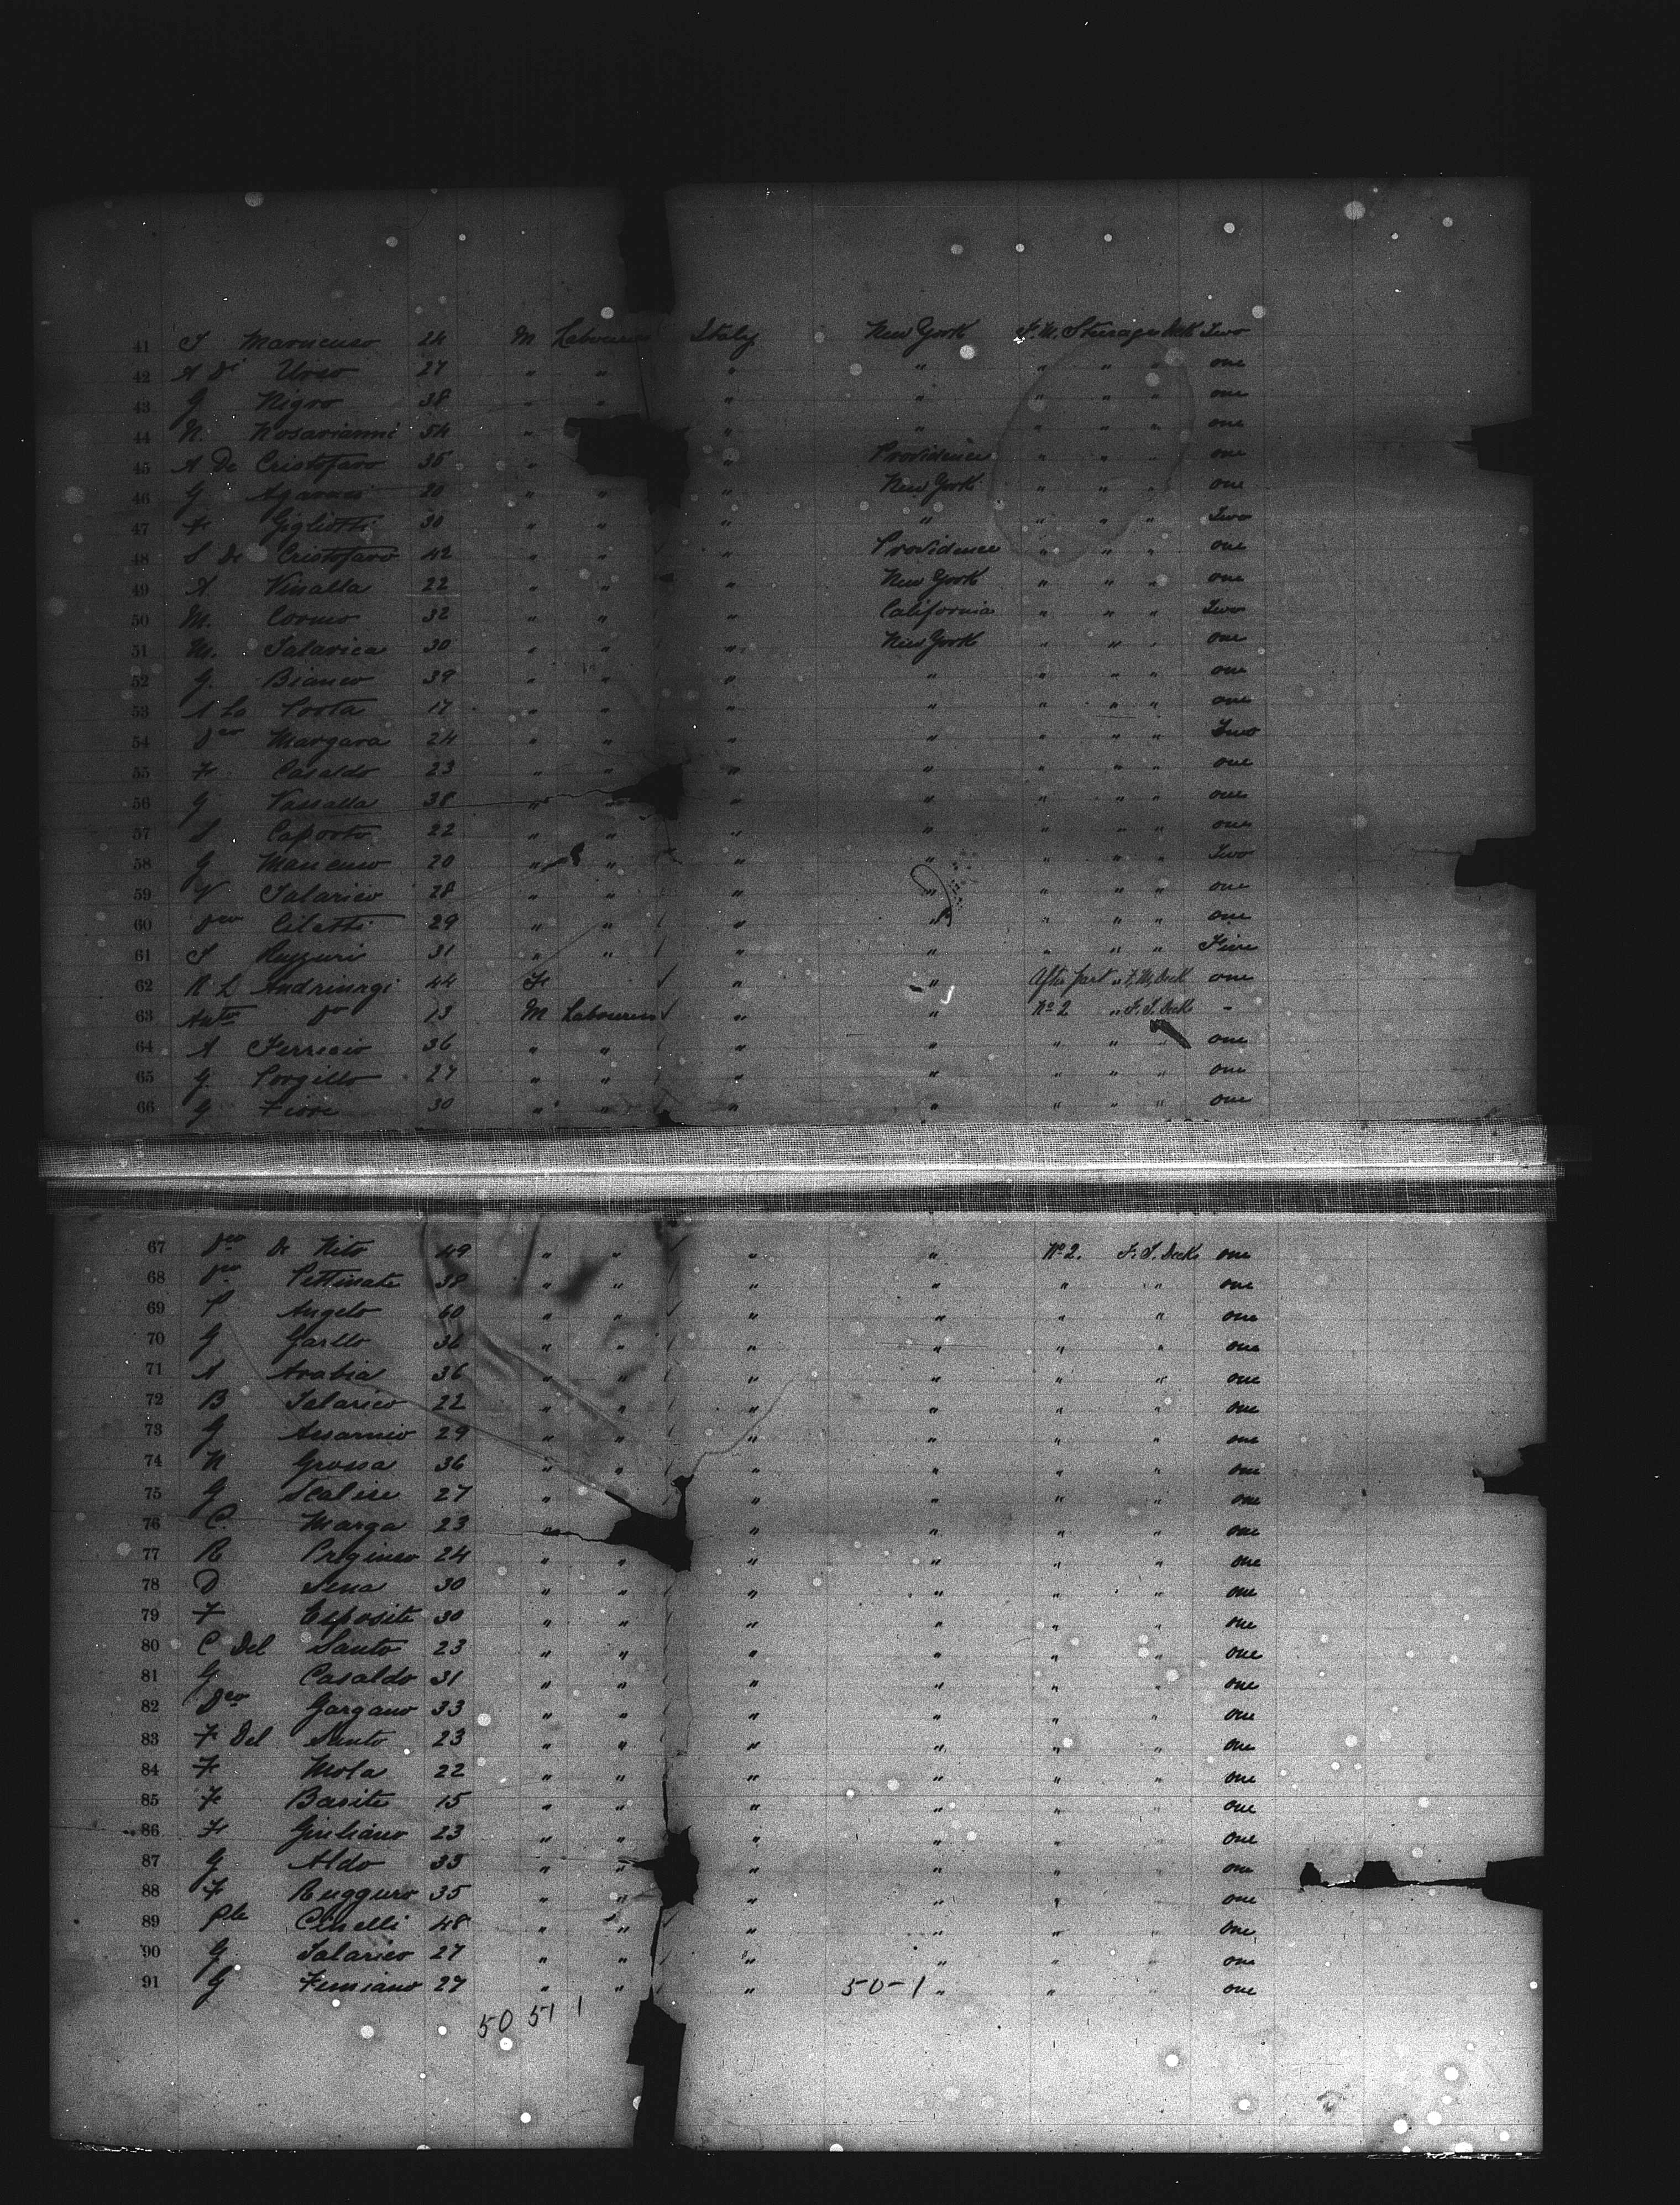 41 S Mancuso 24 M Labourers Italy New York F. M. Steerage Deck Two
42 A Di Urso 27 " " " " " " " one
43 G Nigro 38 " " " " " " " one
44 N. 54 " " " " " " one
45 A De Cristofaro 35 " " Providence " " " one
46 G 20 " " " New York " " " one
47 F Gigliotti 30 " " " " " " " Two
48 S de Cristofaro 42 " " " Providence " " " one
49 A Vinalla 22 " " " New York " " " one
50 M. Cormo 32 " " " California " " " Two
51 M. Talarica 30 " " " New York " " " one
52 G. Bianco 39 " " " " " " " one
53 A La Porta 17 " " " " " " " one
54 Dco Margara 24 " " " " " " " Two
55 F Casaldo 23 " " " " " " " one
56 G Vassalla 38 " " " " " " " one
57 S Caporto 22 " " " " " " " one
58 G Mancuso 20 " " " " " " " Two
59 V Talarico 28 " " " " " " " one
60 Dco Cilatti 29 " " " " " " " one
61 S 31 " " " " " " "
62 R L 44 F " " After part " F, M, Deck one
63 Anto Do 13 M Labourers " " No 2 " F. S. Deck -
64 A Ferricio 36 " " " " " " " one
65 G Porgillo 27 " " " " " " " one
66 G Fiore 30 " " " " " " " one
67 Dco De Nito 49 " " " " No 2. F. S. Deck one
68 Pettinate 38 " " " " " " one
69 P Angelo 60 " " " " " " one
70 G Garllo 36 " " " " " " one
71 A Arabia 36 " " " " " " one
72 B Talarico 22 " " " " " " one
73 G 29 " " " " " " one
74 N Grossa 36 " " " " " " one
75 G Scalise 27 " " " " " one
76 C. Marga 23 " " " " " one
77 R 24 " " " " " " one
78 D Sena 30 " " " " " " one
79 F Esposite 30 " " " " " " one
80 C Del Santo 23 " " " " " " one
81 G Casaldo 31 " " " " " " one
82 Dco Gargano 33 " " " " " " one
83 F Del Santo 23 " " " " " " one
84 F Mola 22 " " " " " " one
85 F Basite 15 " " " " " " one
86 F Giuliano 23 " " " " " " one
87 G Aldo 35 " " " " " " one
88 F Rugguro 35 " " " " " " one
89 Ple Cinelli 48 " " " " " " one
90 G. Talarico 27 " " " " " " one
91 G Femiano 27 " " " 50-1 " " " one
50 51 1